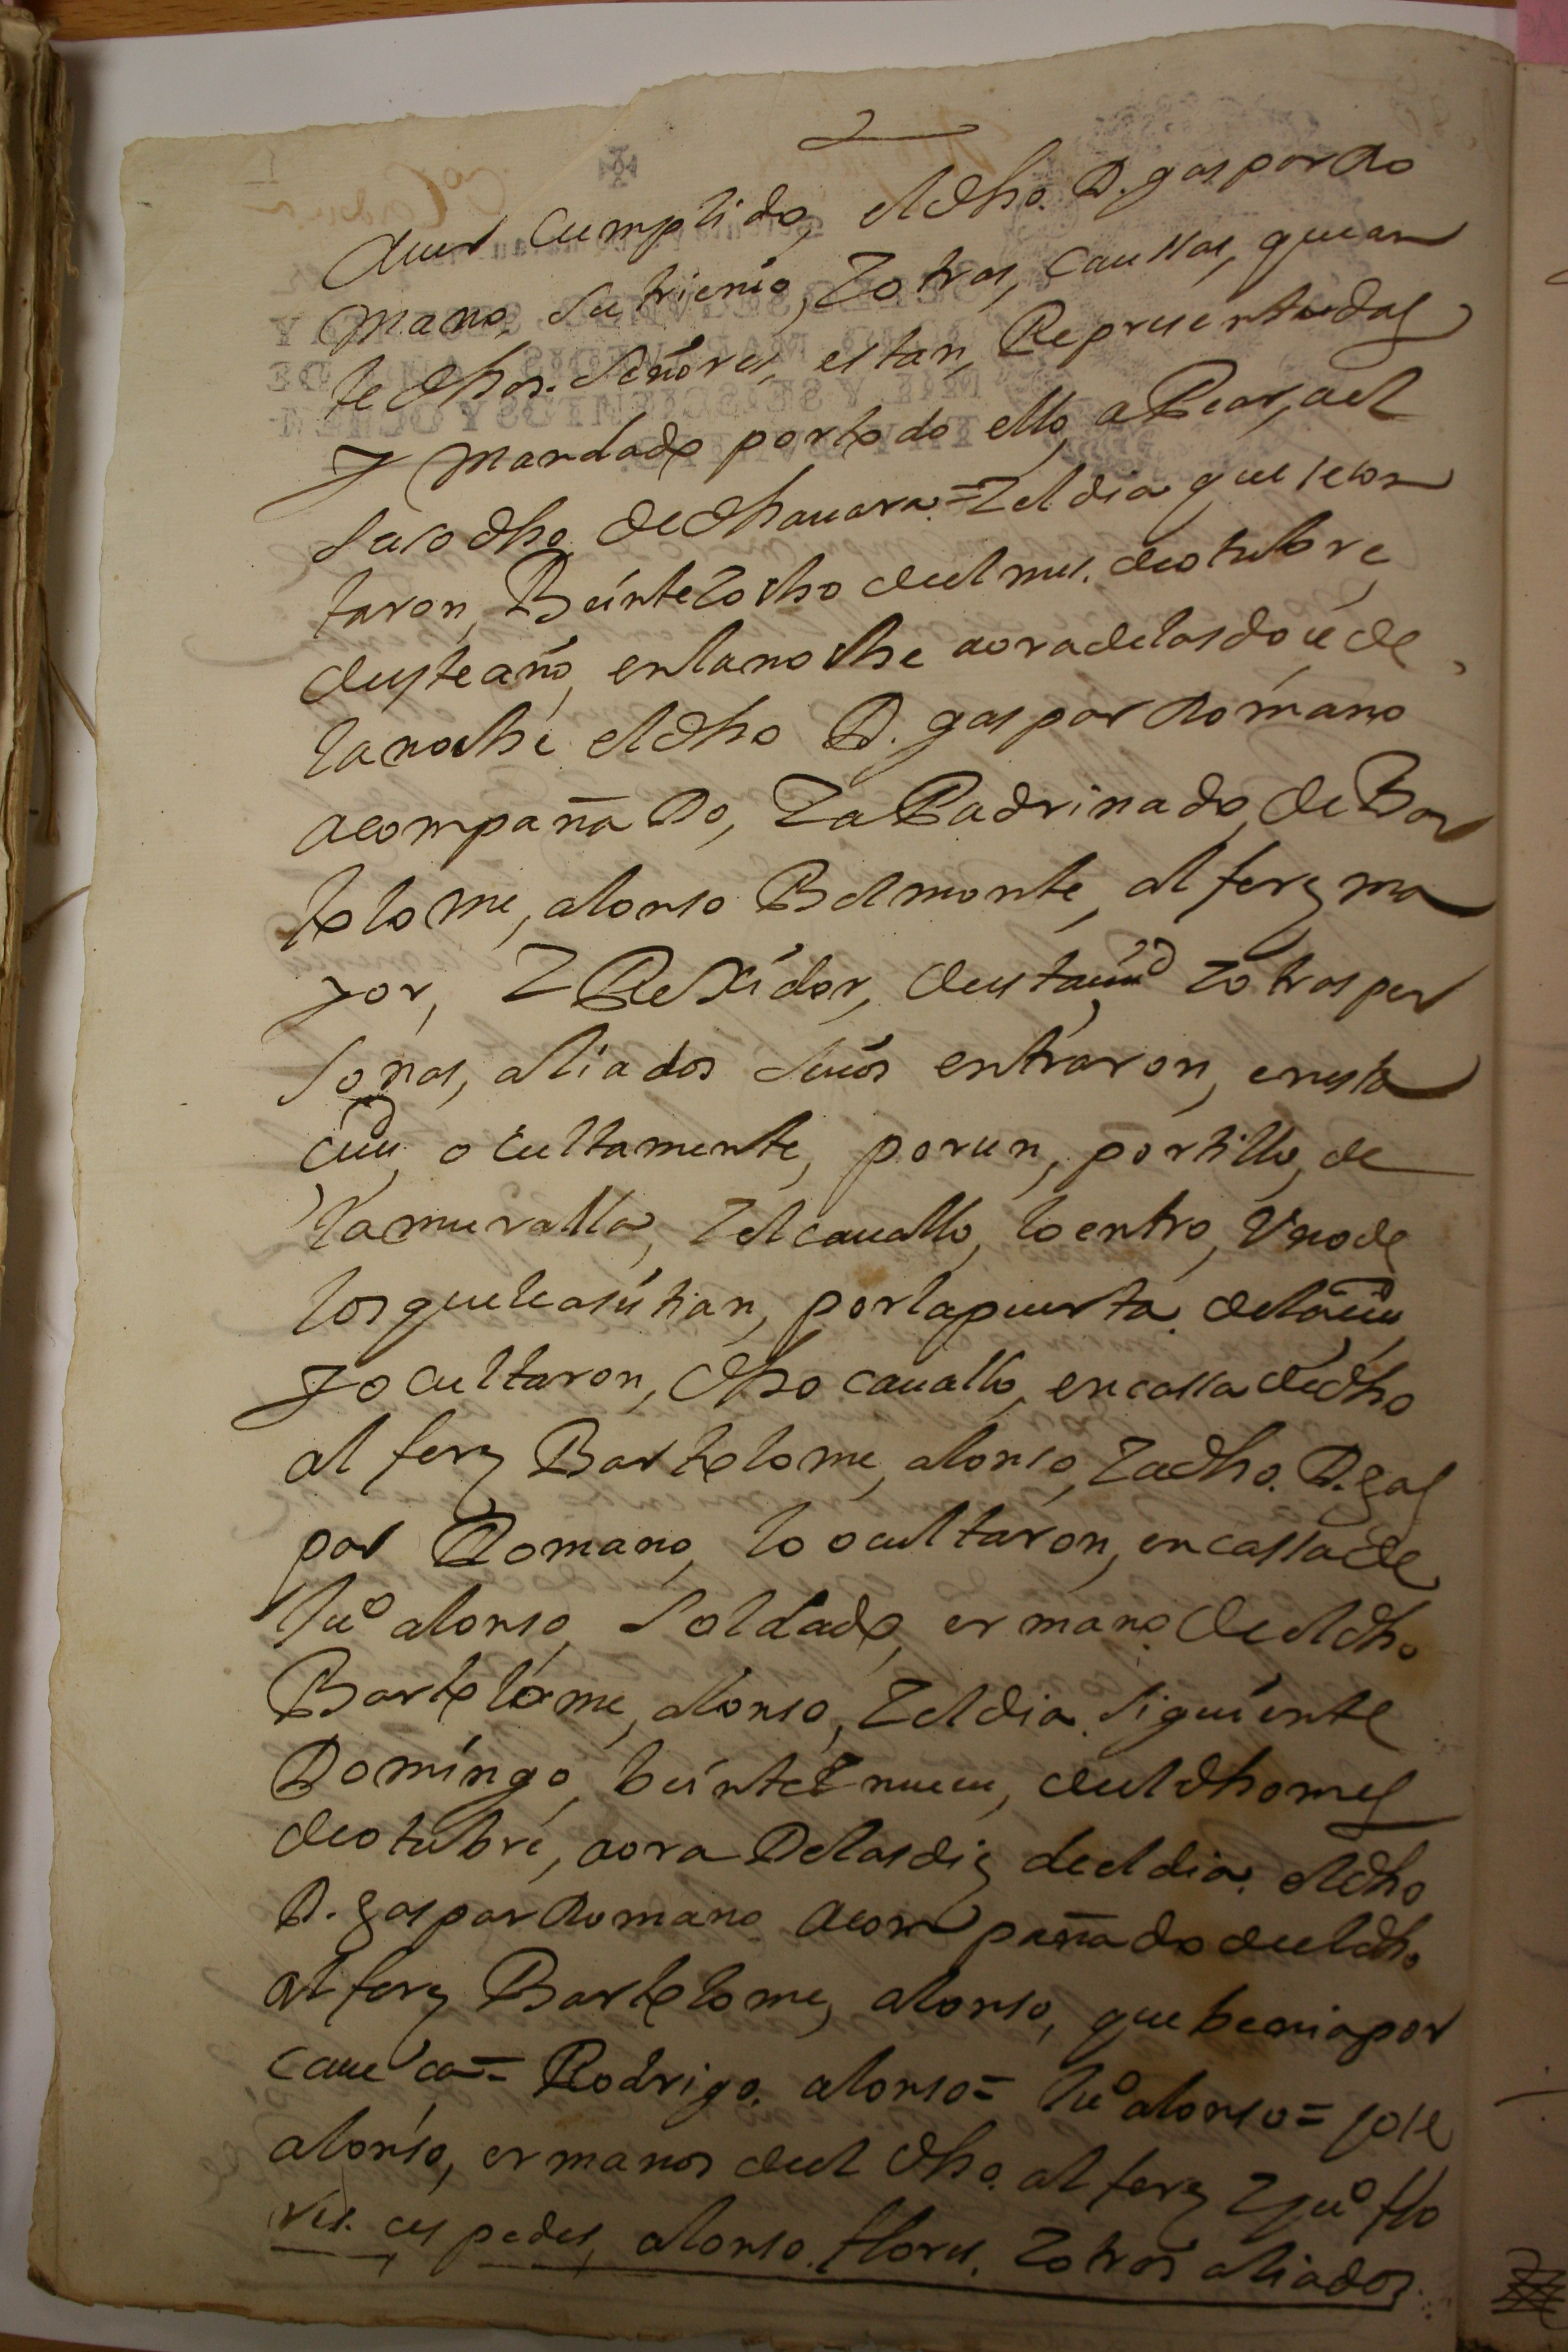 auer cumplido, el dho. D. gaspar Ro
mano, su trienio, Y otras, caussas, que an
te dhos. señores, estan, Representadas
Y mandado por todo ello, a Pear, ael
suso dho. de dha uara = Y el dia que se con
taron, Beinte Y ocho deel mes. de otubre
de este año, en la noche aora de las doce de
la noche el dho D. gaspar Romano
acompañaDo, Y aPadrinado, de Bar
tolome, alonso Belmonte, alferz ma
yor, Y ReXidor, de esta ciud Y otras per
sonas, aliados suios entraron, en esta
ciud, ocultamente, por un, portillo, de
la muralla, Y el cauallo, lo entro, Vno de
los que le asistian, por la puerta. de la ciud
Y ocultaron, dho cauallo, en cassa de dho
alferz Bartolome, alonso, Y a dho. D. gas
par Romano, lo ocultaron, en cassa de
Juº alonso, soldado, ermano de el dho
Bartolome, alonso, Y el dia. siguiente
Domingo, beinte Y nueue, de el dho mes
de otubre, aora De las diez de el dia. el dho
D. gaspar Romano acompañado de el dho
alferz Bartolome, alonso, que benia por
caueca = Rodrigo. alonso = Juº alonso = Jose
alonso, ermanos de el dho. alferz Y Juº flo
res. cespedes, alonso. flores. Y otros aliados